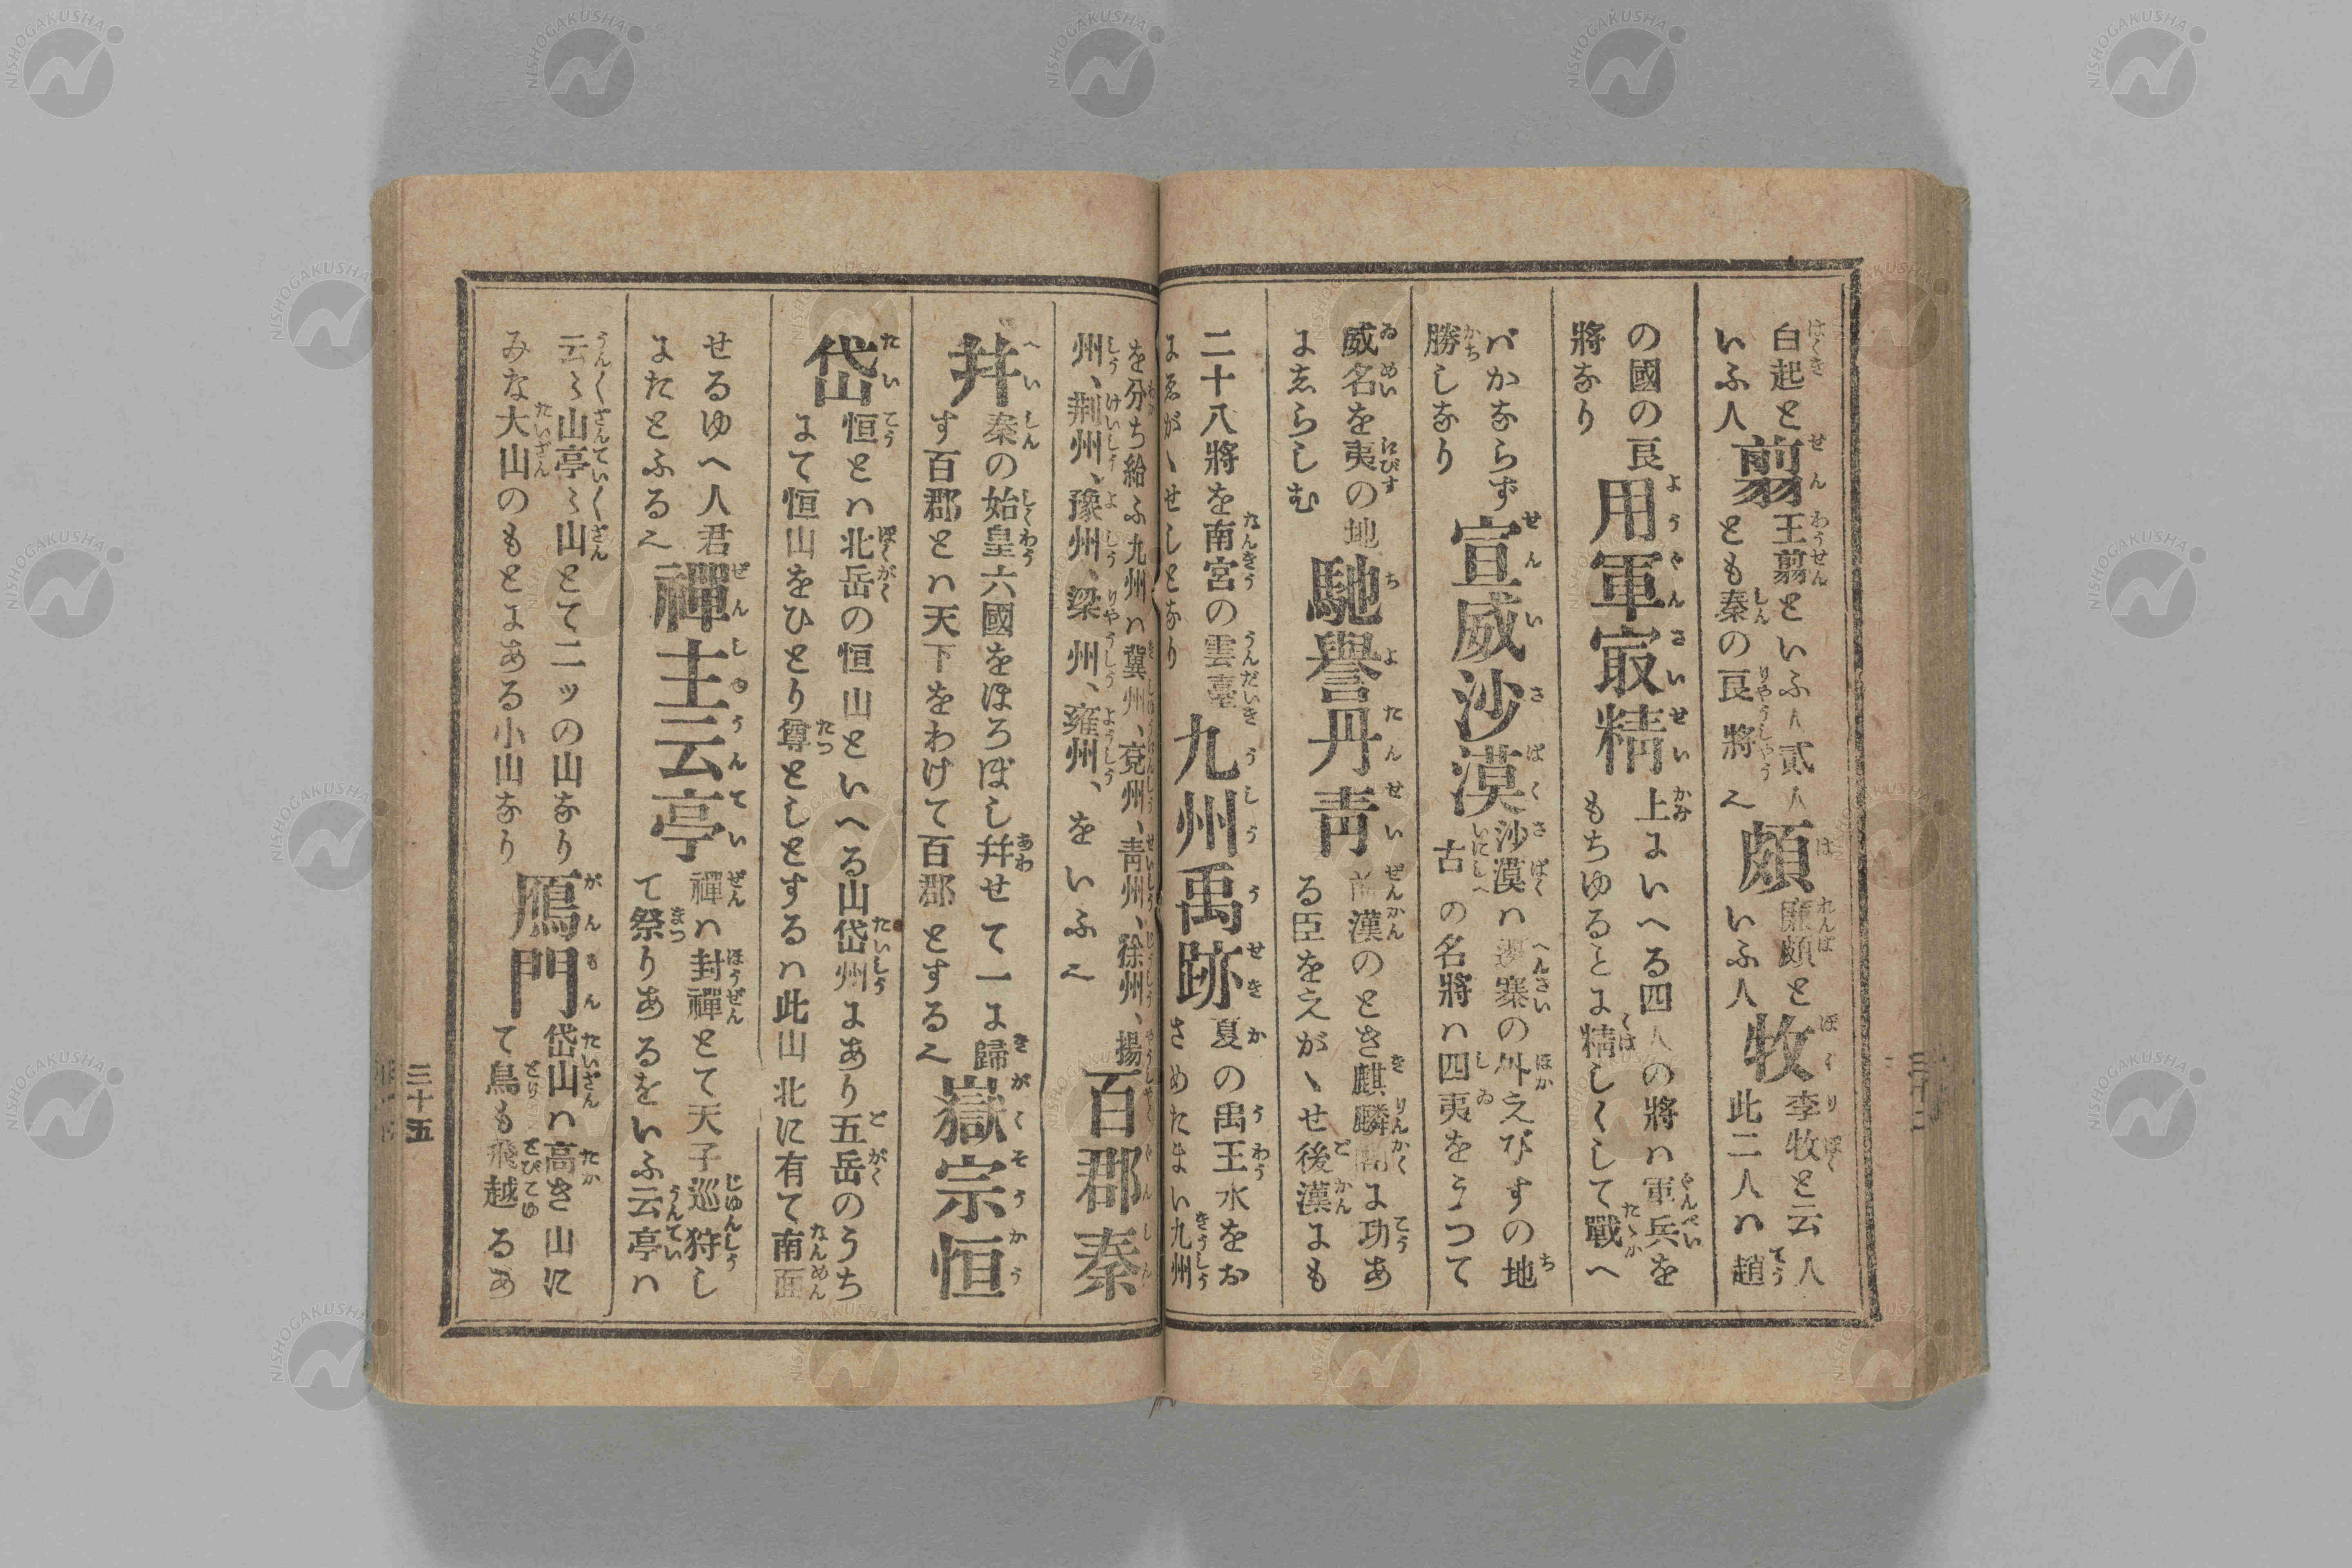 白起と
いふ人
翦
王翦といふ人貳人
とも秦の良將〻
頗
廉頗と
いふ人
牧
李牧と云人
此二人ハ趙
の國の良
將なり
用軍最精
上にいへる四人の將ハ軍兵を
もちゆるとに精しくして戰へ
バかならず
勝しなり
宣威沙漠
沙漠ハ邊塞の外えびすの地
古の名將ハ四夷をうつて
威名を夷の地
にゑらしむ
馳譽丹青
前漢のとき麒麟閣に功あ
る臣をえがゝせ後漢にも
二十八將を南宮の雲臺
にゑがゝせしとなり
九州禹跡
夏の禹王水をお
さめたまい九州
を分ち給ふ九州ハ冀州、兗州、青州、徐州、揚
州、荆州、豫州、梁州、雍州、をいふ〻
百郡秦
幷
秦の始皇六國をほろぼし幷せて一に歸
す百郡とハ天下をわけて百郡とする〻
嶽宗恒
岱
恒とハ北岳の恒山といへる山岱州にあり五岳のうち
にて恒山をひとり尊としとするハ此山北に有て南面
せるゆへ人君
にたとふる〻
禪主云亭
禪ハ封禪とて天子巡狩し
て祭りあるをいふ云亭ハ
云〻山亭〻山とて二ッの山なり
みな大山のもとにある小山なり
鴈門
岱山ハ高き山に
て鳥も飛越るあ
三十五